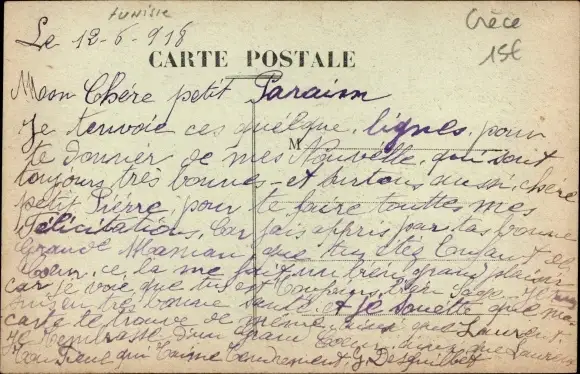 tunisie
Grèce
15€
Le 12-6-918
CARTE POSTALE
Mon Chére petit Paraim
Je tenvoie ces quelque, lignes, pour
M
te donnér de mes Nouvélle, qui sont
toujours très bonnes, et surtous aussi, chére
petit Pierre pour te faire touttes mes
Félicitations, Car jais appris par tas bonne
Grande Maman, que tu étez Enfant de
Coeur, ce, la me fait un trés grand plaisir
car je voie que tu est toujours bien sage. Je
suis en trés bonne santé, et je souette que ma
carte te trouve de méme, que Laurent.
Je tembrasse d'un grand Coeur, que Laurent
Ton qui taime tendrement, G.